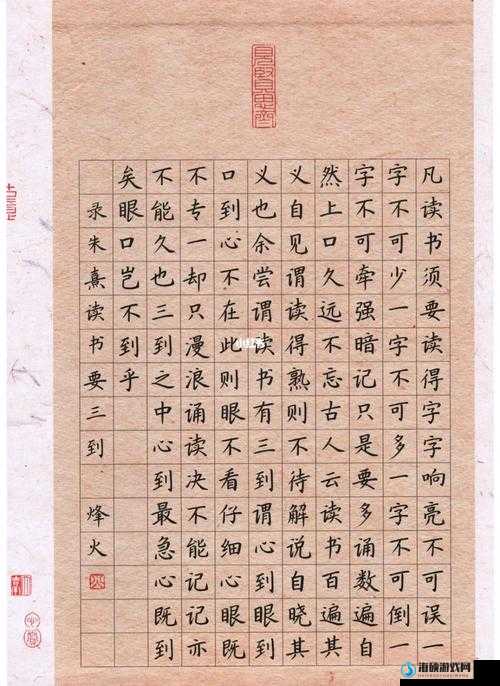 见贤思齐
凡读书须要读得字字响亮不可误一
字不可少一字不可多一字不可倒一
字不可牵强暗记只是要多诵数遍自
然上口久远不忘古人云读书百遍其
义自见谓读得熟则不待解说自晓其
义也余尝谓读书有三到谓心到眼到
口到心不在此则眼不看仔细心眼既
不专一却只漫浪诵读决不能记记亦
不能久也三到之中心到最急心既到
矣眼口岂不到乎
录朱熹读书要三到 烽火
海硕游戏网